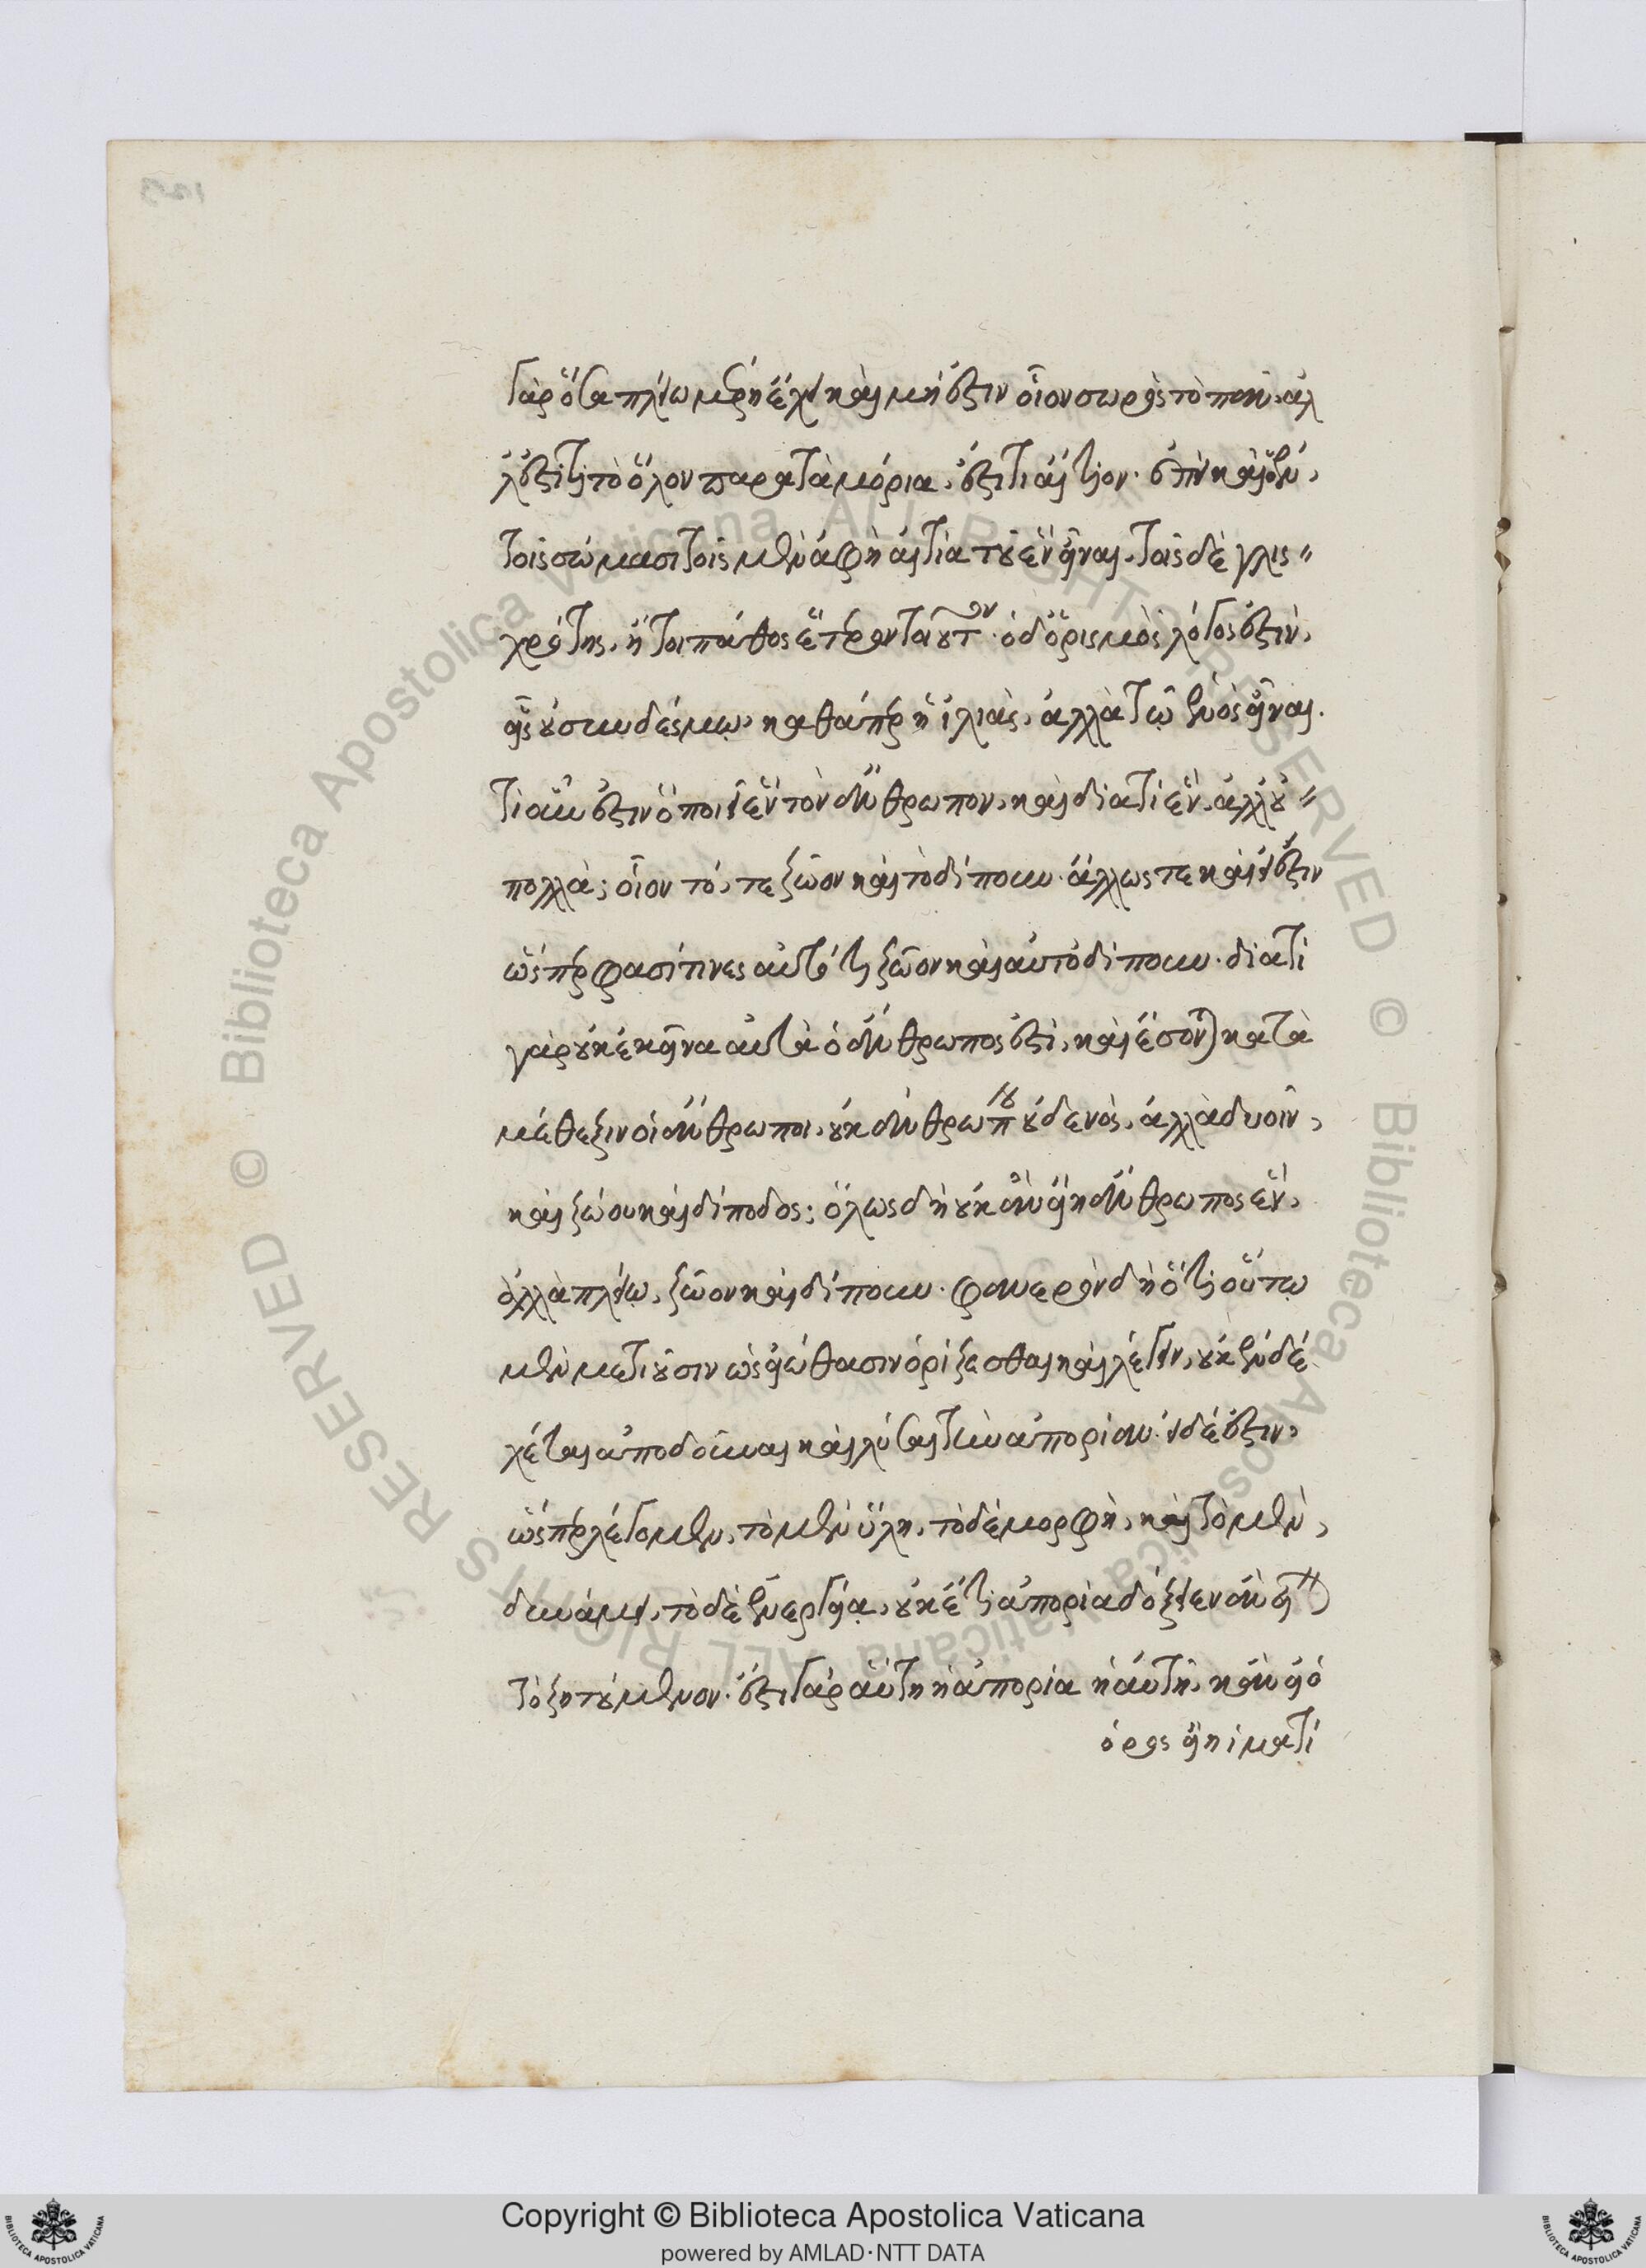 γὰρ ὅσα πλείω μέρη ἔχει καὶ μή ἐστιν οἷον σωρὸς τὸ πᾶν, ἀλ
λ' ἔστι τι τὸ ὅλον παρὰ τὰ μόρια, ἔστι τι αἴτιον. ἐπεὶ καὶ ἐν
τοῖς σώμασι τοῖς μὲν ἁφὴ αἰτία τοῦ ἓν εἶναι, τοῖς δὲ γλισ
χρότης, ἤ τοι πάθος ἕτερον τοιοῦτον. ὁ δ' ὁρισμὸς λόγος ἐστὶν
εἷς οὐ συνδέσμῳ, καθάπερ ἡ ἰλιὰς, ἀλλὰ τῷ ἑνὸς εἶναι.
τί οὖν ἐστιν ὃ ποιεῖ ἓν τὸν ἄνθρωπον, καὶ διατί ἓν, ἀλλ' οὐ
πολλὰ; οἷον τό, τε ζῷον καὶ τὸ δίπουν. ἄλλως τε καὶ εἰ ἔστιν
ὥσπερ φασί τινες αὐτό τι ζῷον καὶ αὐτὸ δίπουν. διατί
γὰρ οὐκ ἐκεῖνα αὐτὰ ὁ ἄνθρωπος ἐστὶ, καὶ ἔσονται κατὰ
μέθεξιν οἱ ἄνθρωποι, οὐκ ἀνθρώπου οὐδενὸς, ἀλλὰ δυοῖν,
καὶ ζώου καὶ δίποδος; ὅλως δὴ οὐκ ἂν εἴη ἄνθρωπος ἓν,
ἀλλὰ πλείω, ζῷον καὶ δίπουν. φανερὸν δὴ ὅτι οὕτω
μὲν μετιοῦσιν ὡς εἰώθασιν ὁρίζεσθαι καὶ λέγειν, οὐκ ἐνδέ
χεται ἀποδοῦναι καὶ λῦσαι τὴν ἀπορίαν. εἰ δέ ἐστιν,
ὥσπερ λέγομεν, τὸ μὲν ὕλη, τὸ δὲ μορφὴ, καὶ τὸ μὲν
δυνάμει, τὸ δὲ ἐνεργείᾳ, οὐκέτι ἀπορία δόξειεν ἂν εἶναι
τὸ ζητούμενον. ἔστι γὰρ αὕτη ἡ ἀπορία ἡ αὐτὴ, κἂν εἰ ὁ
ὅρος εἴη ἱματί